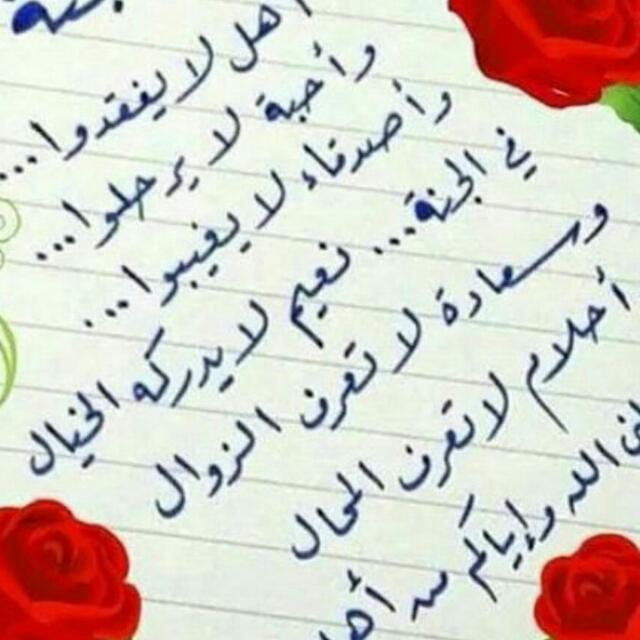 أهل لا يفقدوا...
وأحبة لا يرحلوا...
وأصدقاء لا يغيبوا...
في الجنة... نعيم لا يدركه الخيال
وسعادة لا تعرف الزوال
أحلام لا تعرف المحال
الله وإياكم من